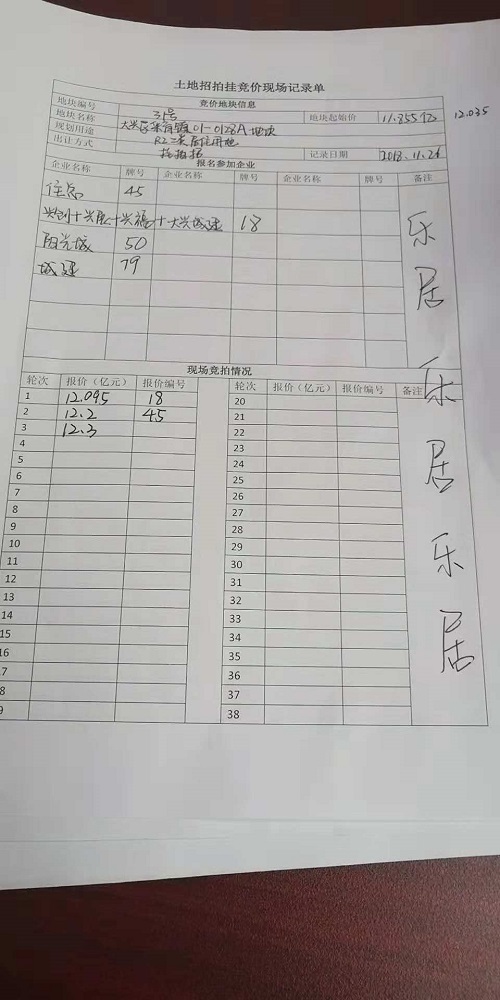 土地招拍挂竞价现场记录单
竞价地块信息
地块编号 31号 地块起始价 11.855亿 12.035
地块名称 大兴区采育镇01-0128A地块
规划用途 R2二类居住用地
出让方式 招拍挂 记录日期 2018.11.26
报名参加企业
企业名称 牌号 企业名称 牌号 企业名称 牌号 备注
住总 45
兴创+兴展+兴福+大兴城建 18
阳光城 50
城建 79
乐居乐居乐居
现场竞拍情况
轮次 报价（亿元） 报价编号 轮次 报价（亿元） 报价编号 备注
1 12.095 18 20
2 12.2 45 21
3 12.3 22
4 23
5 24
6 25
7 26
8 27
9 28
10 29
11 30
12 31
13 32
14 33
15 34
16 35
7 36
8 37
9 38